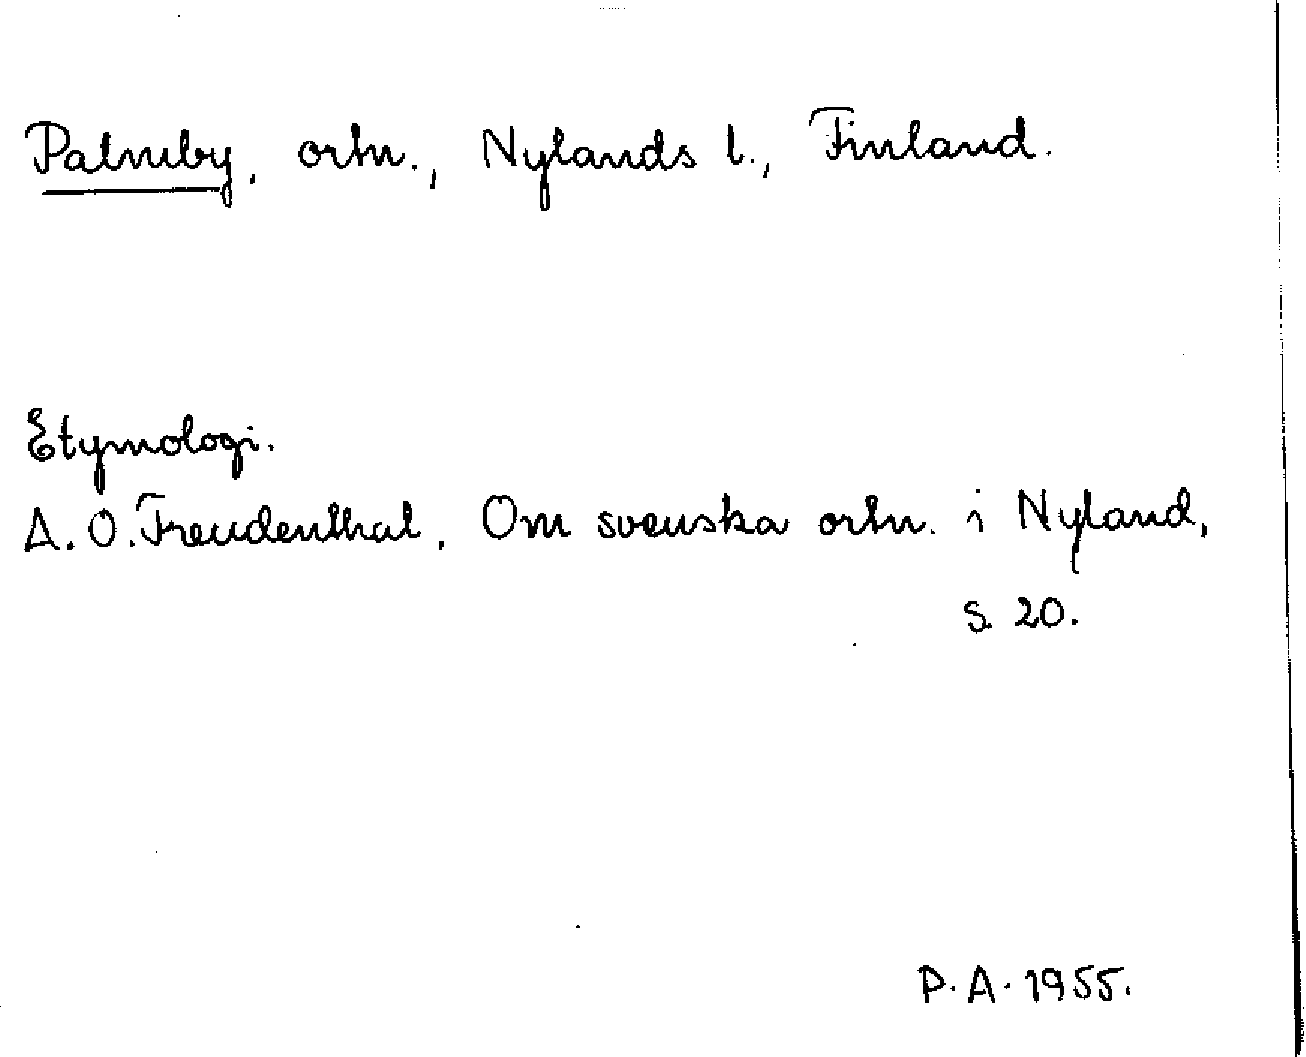 Palmby, ortn., Nylands l., Finland.
Etymologi.
A. O. Freudenthal, Om svenska ortn. i Nyland,
s. 20.
P. A. 1955.